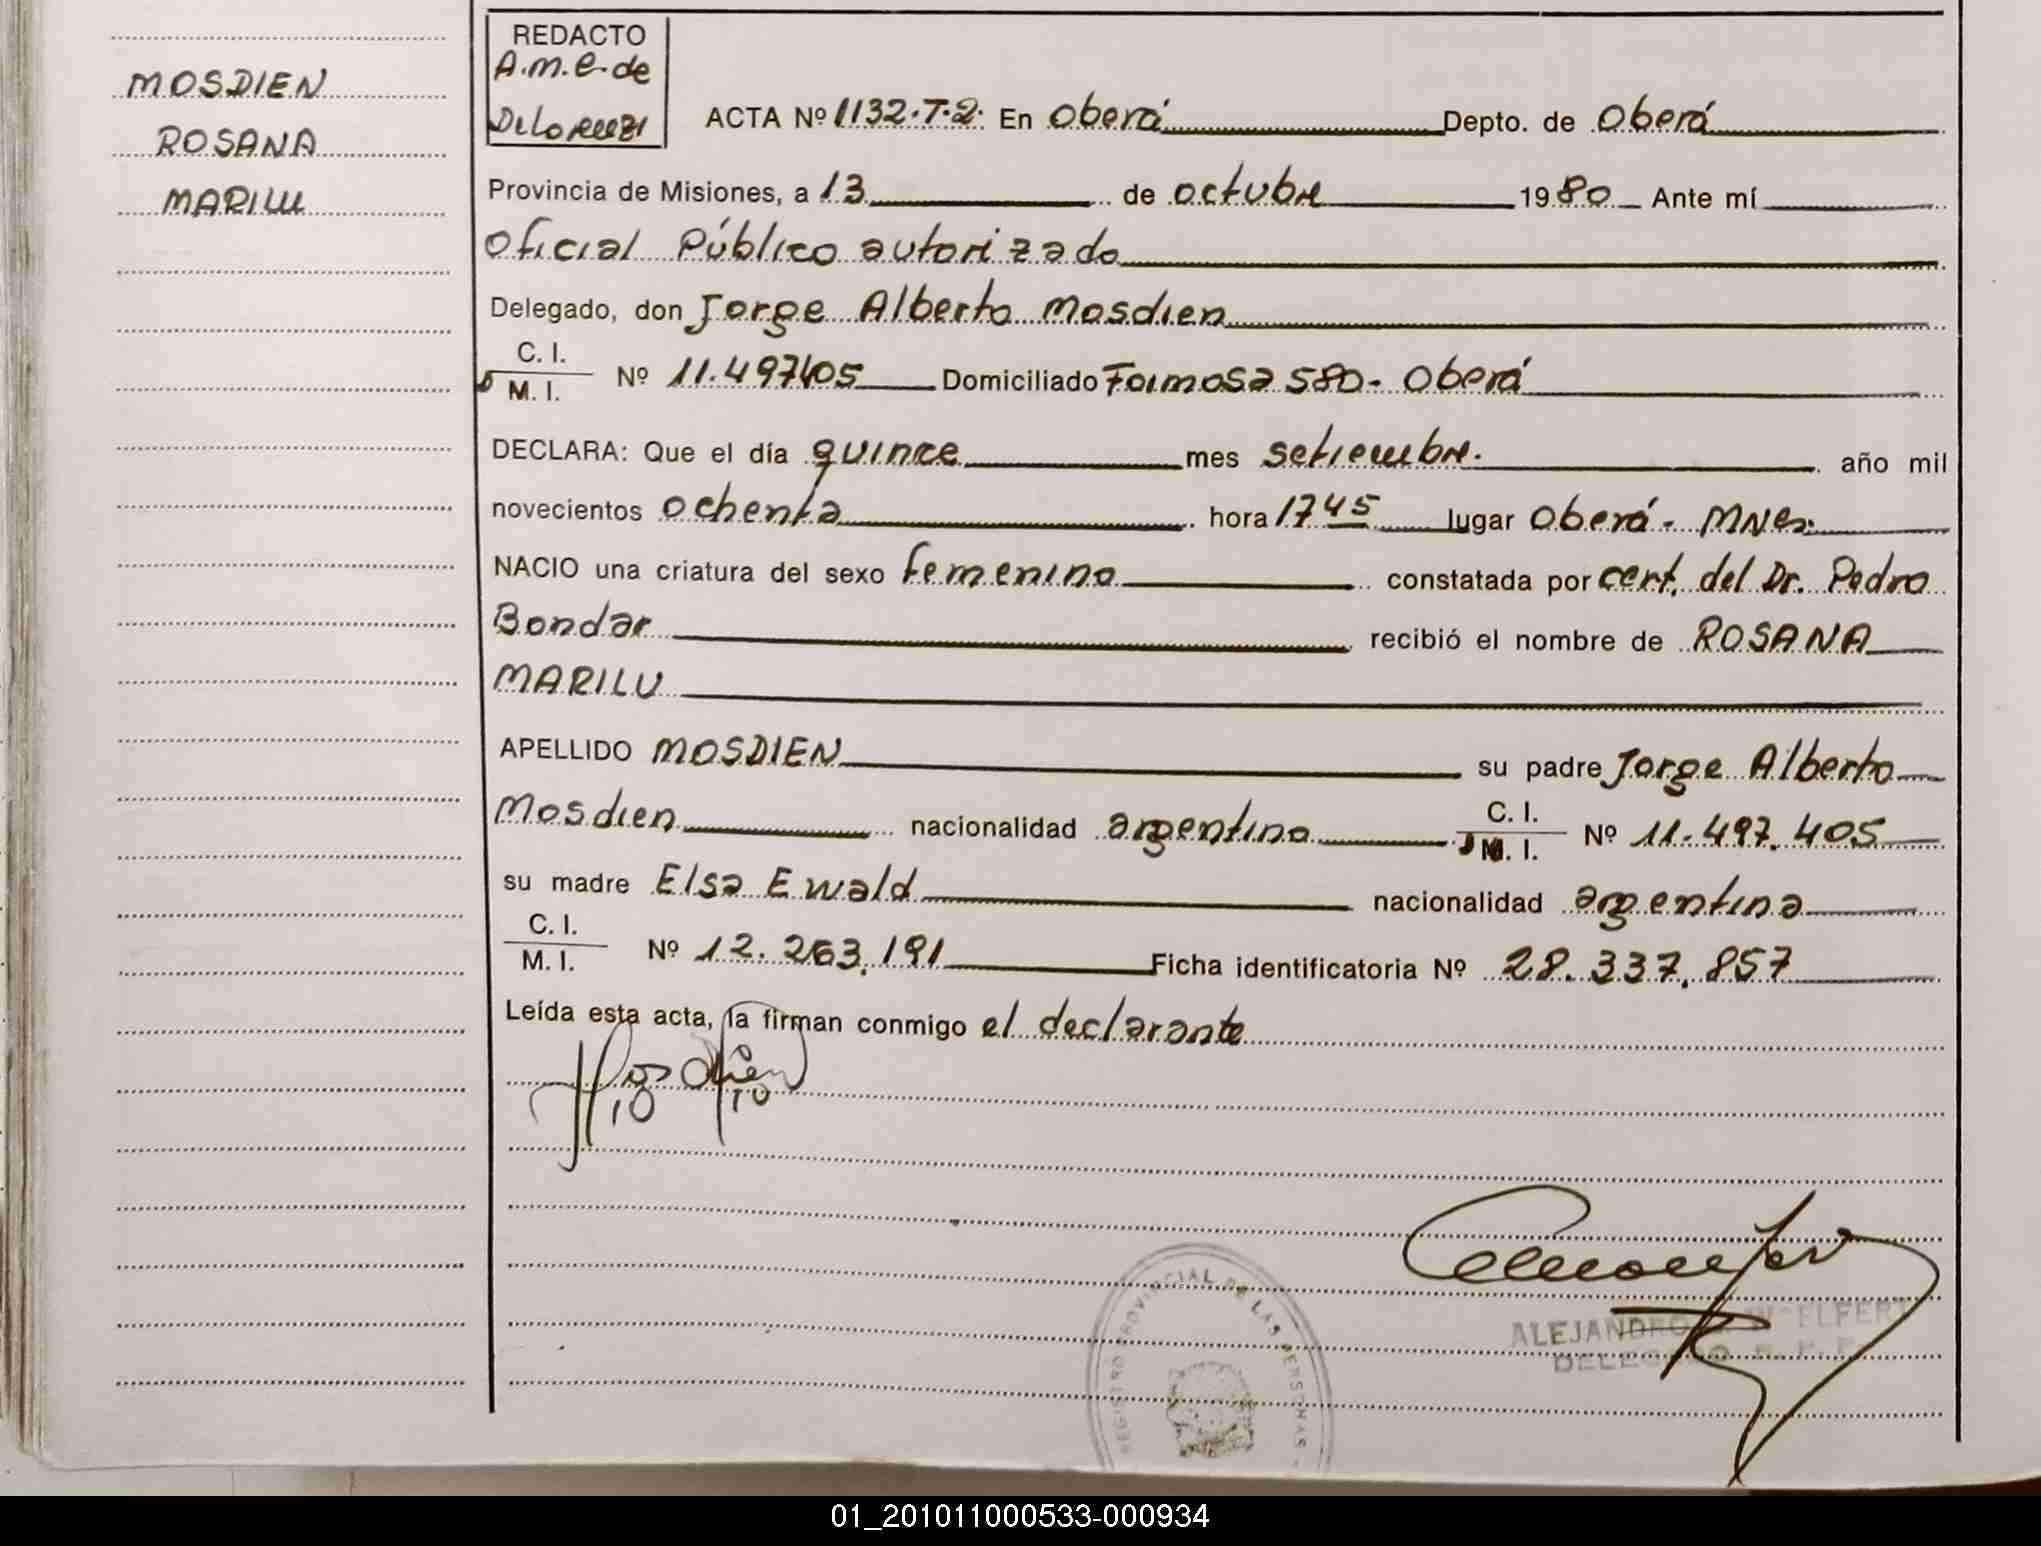 MOSDIEN
ROSANA
MARILU
REDACTO
A.M.E. de
DeLorenzi
ACTA Nº 1132.T.2. En Oberá Depto. de Oberá
Provincia de Misiones, a 13 de octubre 1980 Ante mí
Oficial Público autorizado
Delegado, don Jorge Alberto Mosdien
C. I.
M. I. Nº 11.497405 Domiciliado Formosa 580- Oberá
DECLARA: Que el día quince mes setiembre. año mil
novecientos ochenta hora 1745 lugar Oberá- MNes.
NACIO una criatura del sexo femenino constatada por cert. del Dr. Pedro
Bondar recibió el nombre de ROSANA
MARILU
APELLIDO MOSDIEN su padre Jorge Alberto
Mosdien nacionalidad argentino C. I.
M. I. Nº 11.497.405
su madre Elsa Ewald nacionalidad argentina
C. I.
M. I. Nº 12.263.191 Ficha identificatoria Nº 28.337.857
Leída esta acta, la firman conmigo el declarante
Mosdien
REGISTRO PROVINCIAL DE LAS PERSONAS
ALEJANDRO WELFERT
DELEGADO R. P. P.
01_201011000533-000934